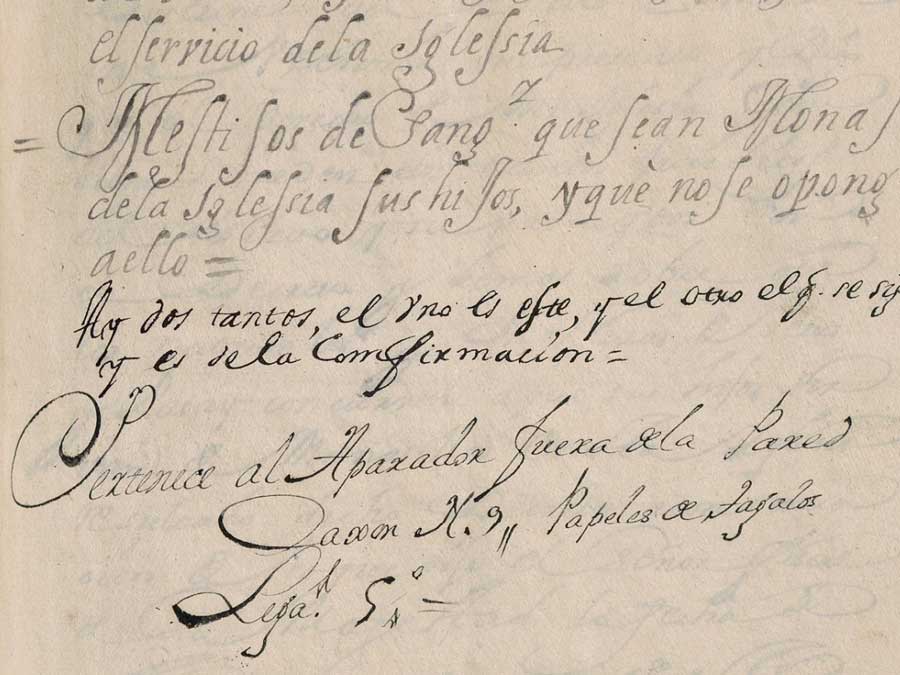 el servicio de la Iglessia
= Mestisos de Sangz. que sean Monas
de la Iglessia sus hijos, y què no se opong
a ello =
Ay dos tantos, el vno es este, y el otro el q. se si
y es de la Comfirmacion =
Pertenece al Aparador fuera de la Pared
Caxon N. 9,, Papeles de Tagalos
Lega.º 5º =